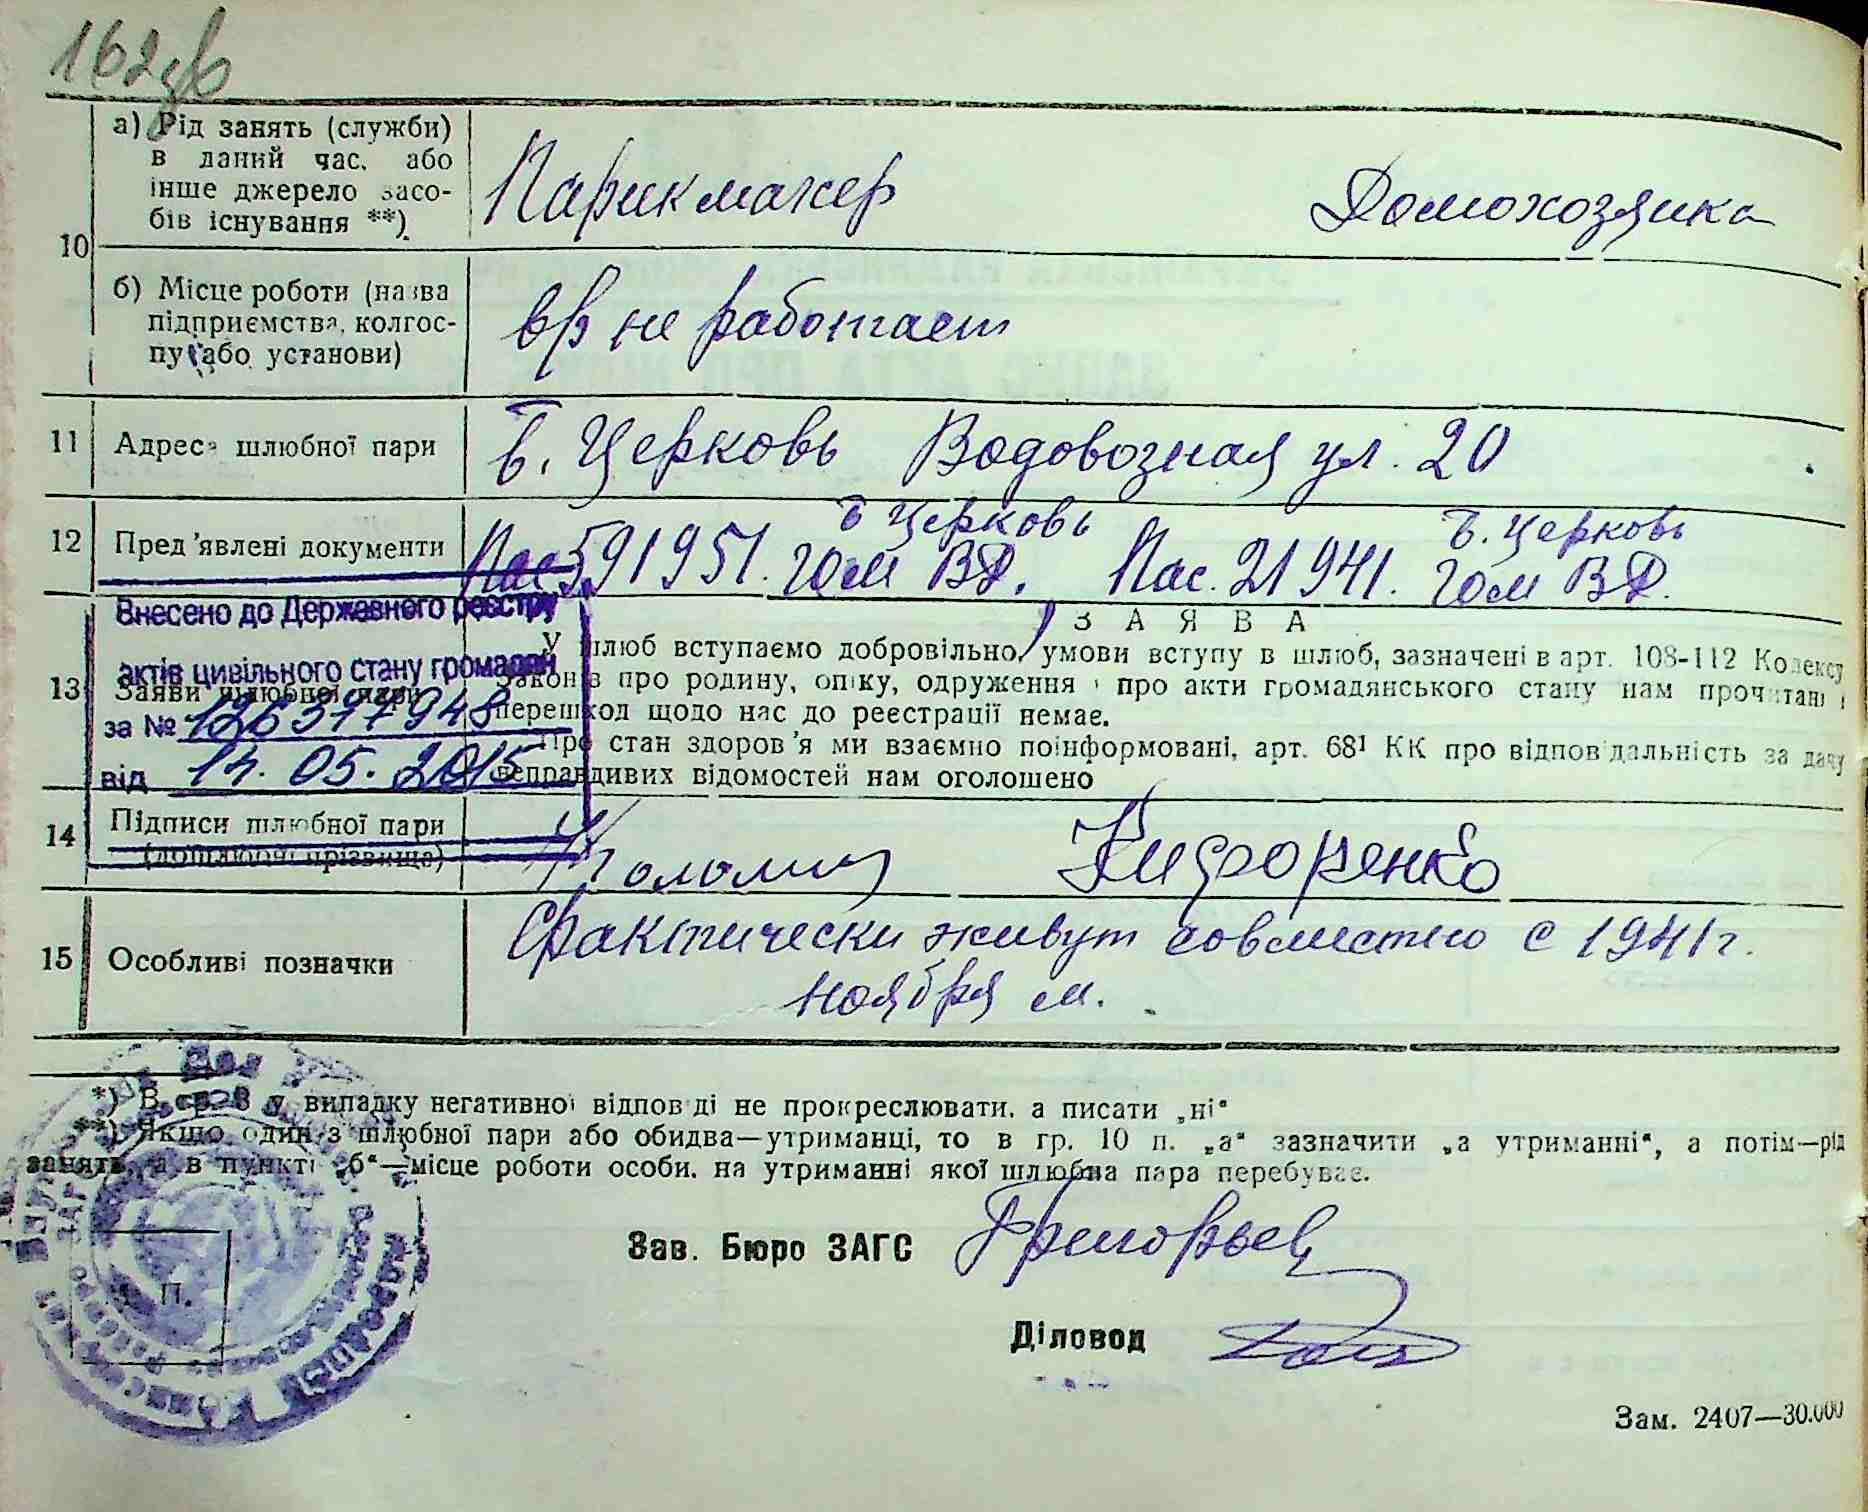 162зв
10
а) Рід занять (служби)
в даний час, або
інше джерело засо-
бів існування **)
Парикмахер Домохозяика
б) Місце роботи (назва
підприємства, колгос-
пу або установи)
вр не работает
11 Адреса шлюбної пари Б. Церковь Водовозная ул. 20
12 Пред'явлені документи Пас 591951. Б Церковь гом ВД. Пас. 21941. Б. Церковь гом ВД.
Внесено до Державного реєстру
актів цивільного стану громадян
за № 126377948
від 14.05.2015
13 Заяви шлюбної пари
ЗАЯВА
У шлюб вступаємо добровільно, умови вступу в шлюб, зазначені в арт. 108-112 Кодексу
законів про родину, опіку, одруження і про акти громадянського стану нам прочитані і
перешкод щодо нас до реєстрації немає.
Про стан здоров'я ми взаємно поінформовані, арт. 68¹ КК про відповідальність за дачу
неправдивих відомостей нам оголошено
14 Підписи шлюбної пари
(дошлюбні прізвища)
15 Особливі позначки
Фактически живут совместно с 1941г.
ноября м.
*) В гр. 8 у випадку негативної відповіді не прокреслювати, а писати „ні“
**) Якщо один з шлюбної пари або обидва—утриманці, то в гр. 10 п. „а“ зазначити „а утриманні“, а потім—рід
занять, а в пункті „б“—місце роботи особи, на утриманні якої шлюбна пара перебуває.
Зав. Бюро ЗАГС Григорьев
Діловод
М. П.
Зам. 2407—30.000